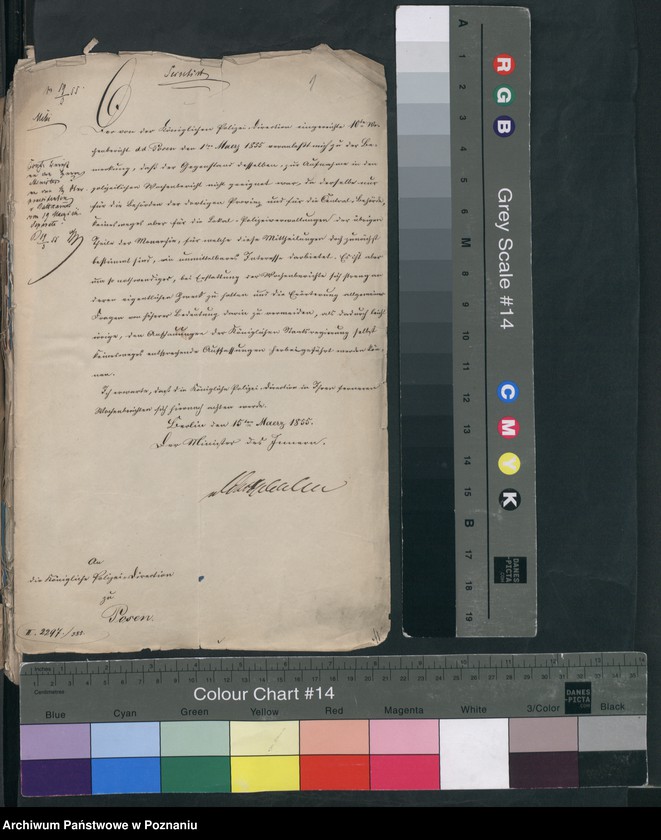 Secretariat
19/3 55.
Der von der Königlichen Polizei-Direction eingereichte 10te Wo-
chenbericht d.d. Posen den 1ten Maerz 1855 veranlaßt mich zu der Be-
merkung, daß der Gegenstand desselben, zur Aufnahme in den
polizeilichen Wochenbericht nicht geeignet war, da derselbe nur
für die Behörden der dortigen Provinz und für die Central-Behörde,
keineswegs aber für die Lokal-Polizeiverwaltungen der übrigen
Theile der Monarchie, für welche diese Mittheilungen doch zunächst
bestimmt sind, ein unmittelbares Interesse darbietet. Es ist aber
um so nothwendiger, bei Erstattung der Wochenberichte sich streng an
deren eigentlichen Zweck zu halten und die Erörterung allgemeiner
Fragen von höherer Bedeutung darin zu vermeiden, als dadurch leicht
irrige, den Anschauungen der Königlichen Staatsregierung selbst
keineswegs entsprechende Auffassungen herbeigeführt werden kön-
nen.
Ich erwarte, daß die Königliche Polizei-Direction in Ihren ferneren
Wochenberichten sich hiernach achten werde.
Berlin den 15ten Maerz 1855.
Der Minister des Innern.
Westphalen
An
die Königliche Polizei-Direction
zu
Posen.
II. 2297./
A 1 2 3 4 5 6 M 8 9 10 11 12 13 14 15 B 17 18 19
R G B
Grey Scale #14
C M Y K
DANES
-PICTA
.COM
Inches
Centimetres
Colour Chart #14
DANES
-PICTA
.COM
Blue Cyan Green Yellow Red Magenta White 3/Color Black
Archiwum Państwowe w Poznaniu